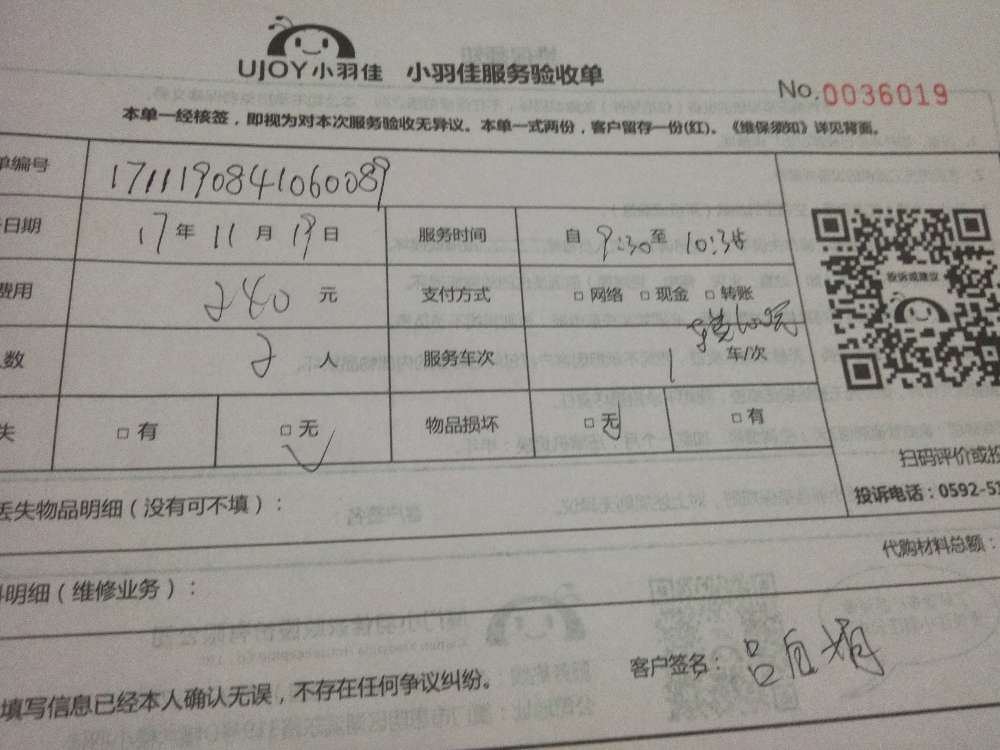 UJOY小羽佳 小羽佳服务验收单
No.0036019
本单一经核签，即视为对本次服务验收无异议。本单一式两份，客户留存一份(红)。《维保须知》详见背面。
单编号 1711190841060089
日期 17年 11月 19日 服务时间 自 9:30至 10:30
费用 240元 支付方式 □ 网络 □ 现金 □ 转账
投诉或建议
数 2人 服务车次 车/次
失 □ 有 □ 无 物品损坏 □ 无 □ 有
扫码评价或投
丢失物品明细（没有可不填）：
投诉电话：0592-51
代购材料总额：
明细（维修业务）：
填写信息已经本人确认无误，不存在任何争议纠纷。
客户签名：